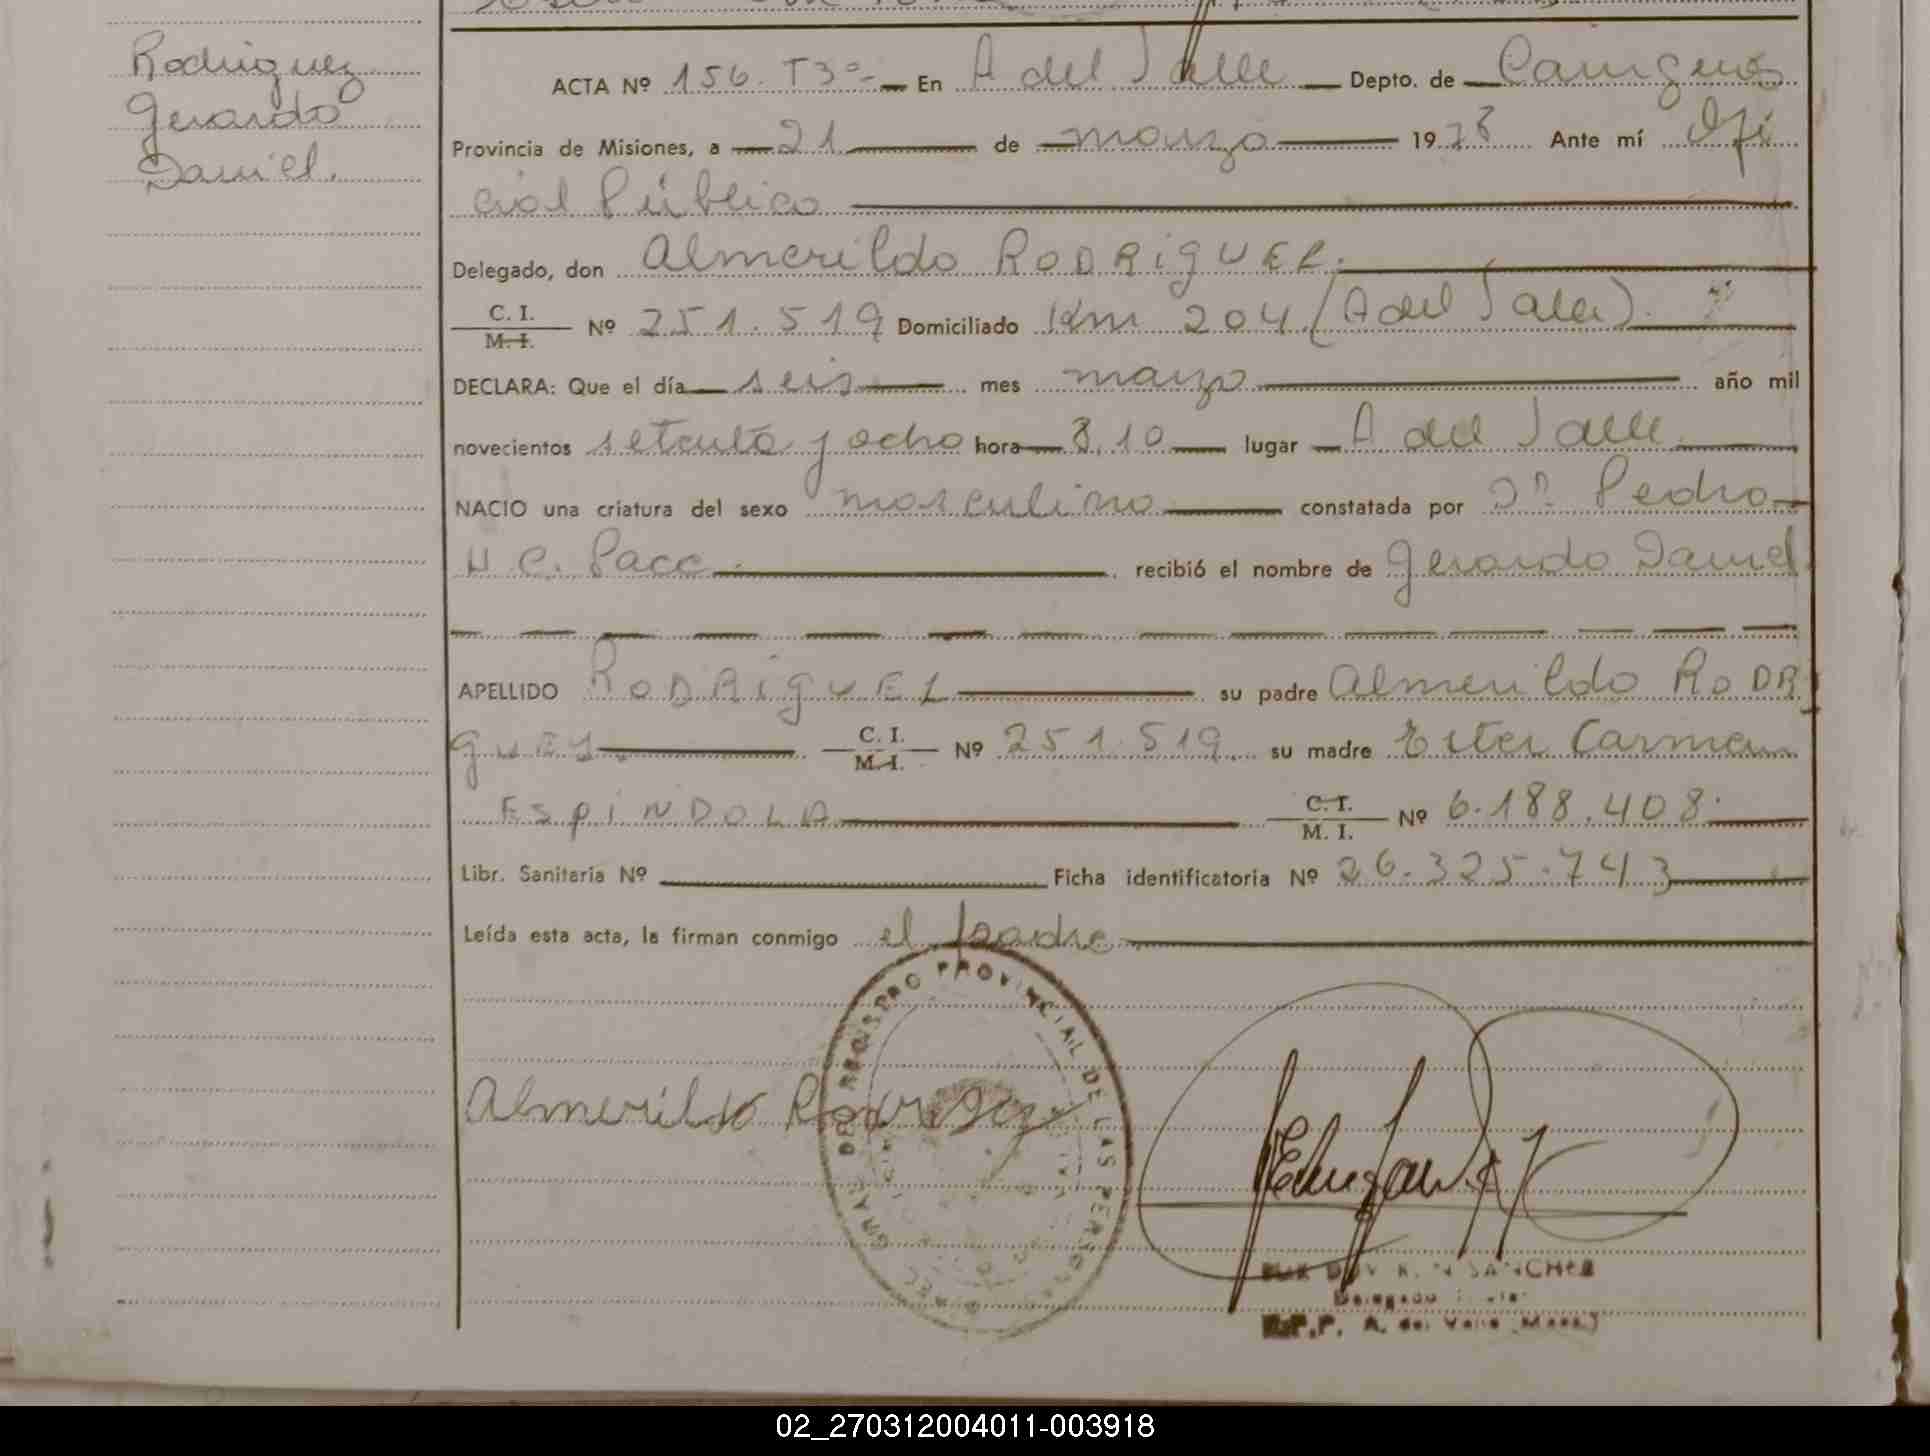 Rodriguez
Gerardo
Daniel.
ACTA Nº 156. T3º - En A del Valle Depto. de Cainguas
Provincia de Misiones, a 21 de marzo 1978 Ante mí Ofi
cial Público
Delegado, don Almerildo RODRIGUEZ.
C. I.
M. I. Nº 251.519 Domiciliado Km 204 (A del Valle).
DECLARA: Que el día seis mes marzo año mil
novecientos setenta y ocho hora 8.10 lugar A del Valle
NACIO una criatura del sexo masculino constatada por Dr. Pedro
H C. Pacc recibió el nombre de Gerardo Daniel
APELLIDO RODRIGUEZ su padre Almerildo RODRI
GUEZ C. I. M. I. Nº 251.519 su madre Ester Carmen
ESPINDOLA C. I. M. I. Nº 6.188.408
Libr. Sanitaria Nº Ficha identificatoria Nº 26.325.743
Leída esta acta, la firman conmigo el padre
REGISTRO PROVINCIAL DE LAS PERSONAS
Almerildo Rodriguez
SANCHEZ
Delegado
R.P.P. A. del Valle
02_270312004011-003918